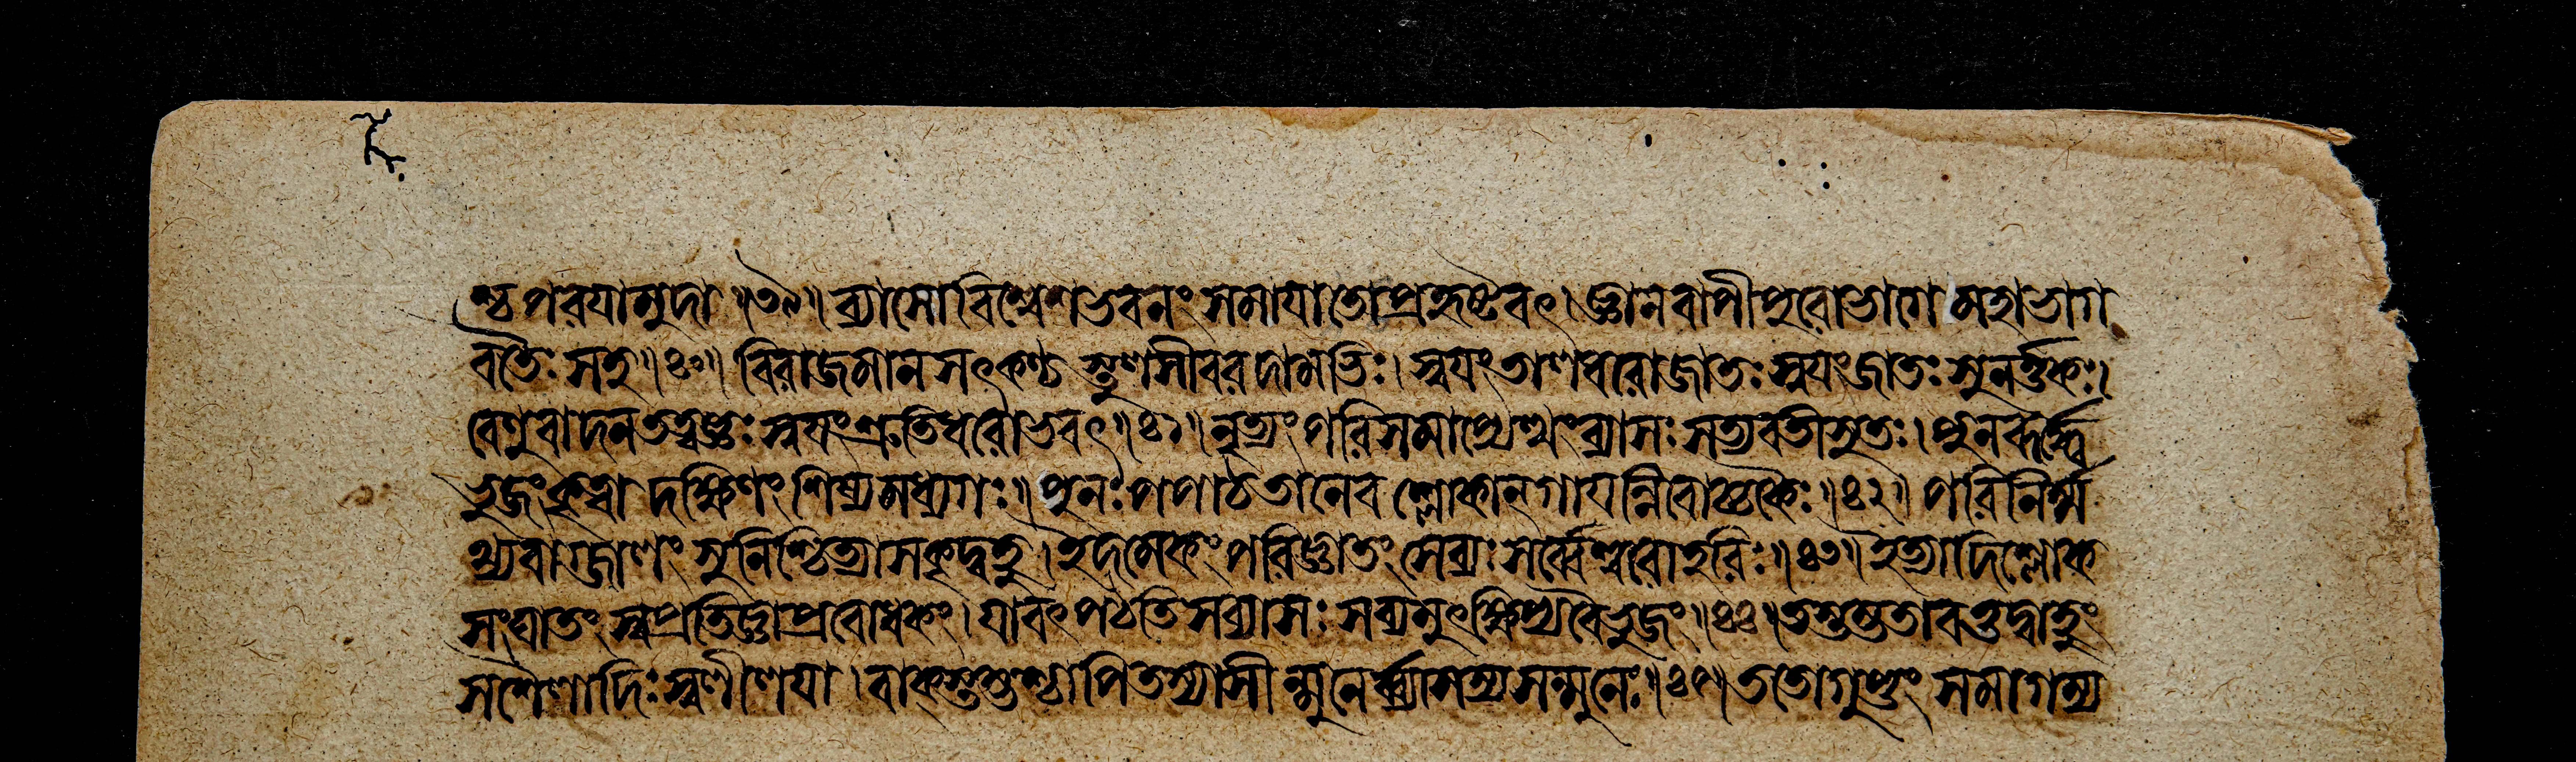 ণ্ঠপরযামুদা ॥৩৯॥ ব্যাসো বিশ্বেশভবনং সমাযাতোপ্রহৃষ্টবৎ। জ্ঞানবাপীপুরোভাগে মহাভাগ
বতৈঃ সহ ॥৪০॥ বিরাজমানসৎকণ্ঠ স্তুলসীবরদামভিঃ। স্বযংতালধরোজাতঃ স্বযংজাতঃ সুনর্ত্তকঃ।
বেণুবাদনতত্ত্বজ্ঞঃ স্বযংশ্রুতিধরোভবৎ ॥৪১॥ নৃত্যং পরিসমাপ্যেত্থংব্যাসঃ সত্যবতীসুতঃ। পুনরূর্দ্ধ্ব
ভুজংকৃত্বা দক্ষিণং শিষ্যমধ্যগঃ॥ পুনঃ পপাঠতানেব শ্লোকানগাযন্নিবোচ্চকৈঃ ॥৪২॥ পরিনির্ম্ম
থ্যবাগ্জালং সুনিশ্চিত্যাসকৃদ্বহু। ইদমেকং পরিজ্ঞাতং সেব্যঃ সর্ব্বেশ্বরোহরিঃ ॥৪৩॥ ইত্যাদিশ্লোক
সংঘাতং স্বপ্রতিজ্ঞাপ্রবোধকং। যাবৎ পঠতিসব্যাসঃ সব্যমুৎক্ষিপ্যবৈভুজং ॥৪৪॥ তস্তম্ভতাবত্তদ্বাহুং
সশৈলাদিঃ স্বলীলযা। বাক্স্তম্ভশ্চাপিতস্যাসী ন্মুনের্ব্যাসস্যসন্মুনেঃ ॥৪৫॥ ততোগুপ্তং সমাগম্য